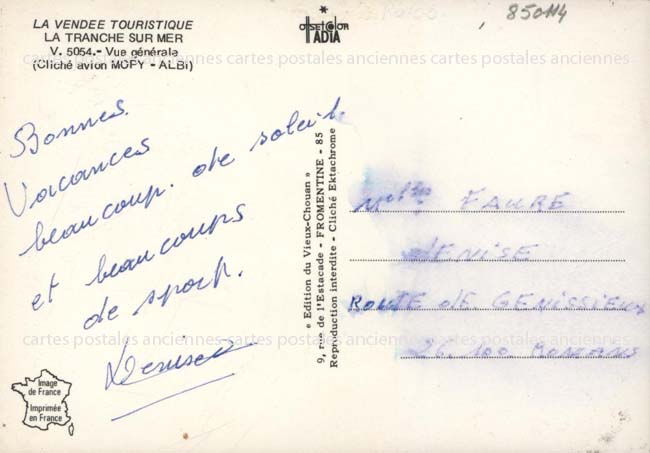 LA VENDEE TOURISTIQUE
LA TRANCHE SUR MER
V. 5054.- Vue générale
(Cliché avion MOPY - ALBI)
OffsetColor
IADIA
850114
cartes postales anciennes cartes postales anciennes cartes postales anciennes
Bonnes
Vacances
beaucoup. de soleil
et beaucoups
de sport.
Denise
« Edition du Vieux-Chouan »
9, rue de l'Estacade - FROMENTINE - 85
Reproduction interdite - Cliché Ektachrome
FAURE
DENISE
ROUTE de GENISSIEUX
26.100 ROMANS
cartes postales anciennes cartes postales anciennes cartes postales anciennes
Image
de France
Imprimée
en France